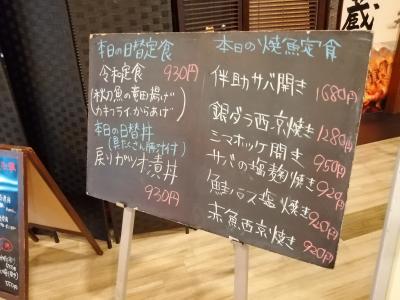 本日の日替定食
令和定食 930円
(秋刀魚の竜田揚げ
カキフライからあげ)
本日の日替丼
(具だくさん豚汁付)
戻りガツオ漬丼
930円
本日の焼魚定食
伴助サバ開き
1680円
銀ダラ西京焼き 1280円
シマホッケ開き 950円
サバの塩麹焼き 920円
鮭ハラス塩焼き 920円
赤魚西京焼き 920円
蔵